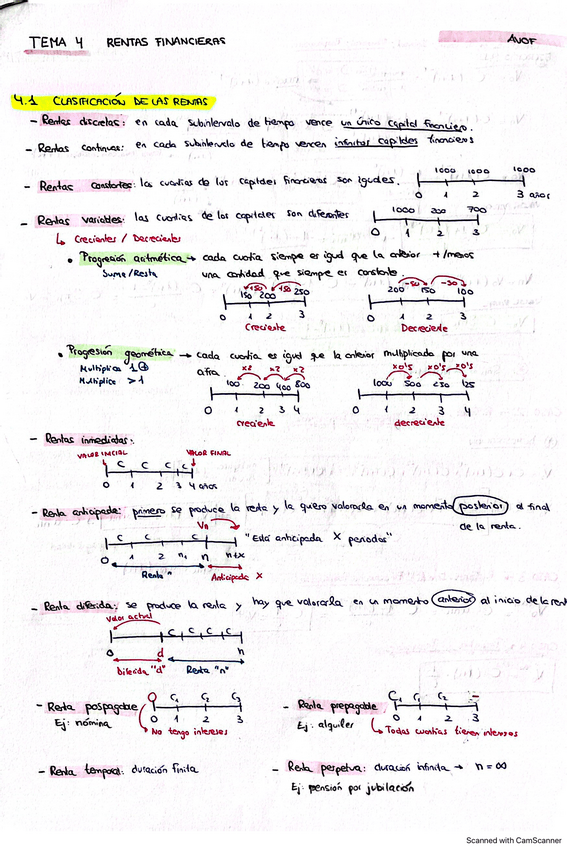 TEMA 4 RENTAS FINANCIERAS
AVOF
4.1 CLASIFICACIÓN DE LAS RENTAS
- Rentas discretas: en cada subintervalo de tiempo vence un único capital financiero.
- Rentas continuas: en cada subintervalo de tiempo vencen infinitos capitales financieros
- Rentas constantes: las cuantías de los capitales financieros son iguales.
1000 1000 1000
0 1 2 3 años
- Rentas variables: las cuantías de los capitales son diferentes
1000 200 700
0 1 2 3
↳ Crecientes / Decrecientes
• Progresión aritmética → cada cuantía siempre es igual que la anterior +/menos
Suma/Resta una cantidad que siempre es constante.
+50 +50
150 200 250
0 1 2 3
Creciente
-50 -50
200 150 100
0 1 2 3
Decreciente
• Progresión geométrica → cada cuantía es igual que la anterior multiplicada por una
Multiplica
Multiplica > 1
cifra.
x2 x2 x2
100 200 400 800
0 1 2 3 4
creciente
x0'5 x0'5 x0'5
1000 500 250 125
0 1 2 3 4
decreciente
- Rentas inmediatas:
VALOR INICIAL VALOR FINAL
C C C C
0 1 2 3 4 años
- Renta anticipada: primero se produce la renta y la quiero valorarla en un momento posterior al final
de la renta.
Vn
C C C
0 1 2 n-1 n n+x
"Está anticipada X periodos"
Renta "n" Anticipada X
- Renta diferida: se produce la renta y hay que valorarla en un momento anterior al inicio de la rent
Valor actual
C C C C
0 d n
Diferida "d" Renta "n"
- Renta pospagable
Ej: nómina
0 C1 C2 C3
0 1 2 3
↳ No tengo intereses
- Renta prepagable
Ej: alquiler
C1 C2
0 1 2 3
↳ Todas cuantías tienen intereses
- Renta temporal: duración finita
- Renta perpetua: duración infinita → n = ∞
Ej: pensión por jubilación
Scanned with CamScanner